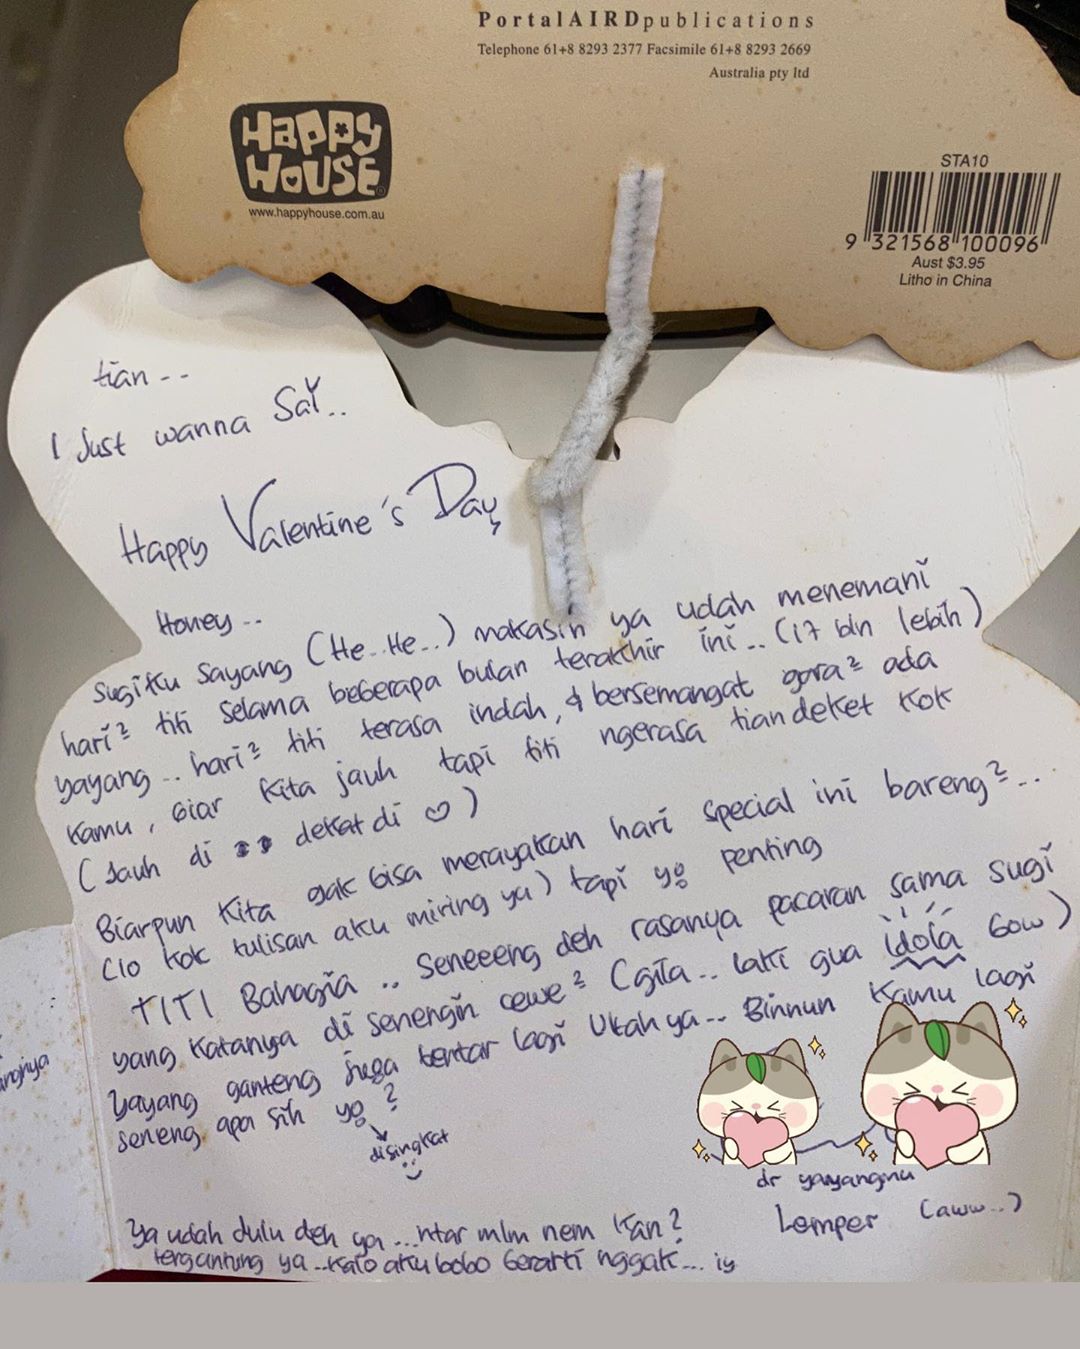 PortalAIRDpublications
Telephone 61+8 8293 2377 Facsimile 61+8 8293 2669
Australia pty ltd
HAPPY
HOUSE
www.happyhouse.com.au
STA10
9 321568 100096
Aust $3.95
Litho in China
tian --
I Just wanna Say..
Happy Valentine's Day
Honey --
sugiku sayang (He..He..) makasih ya udah menemani
hari² titi selama beberapa bulan terakhir ini.. (17 bln lebih)
yayang .. hari² titi terasa indah, & bersemangat gara² ada
kamu, biar kita jauh tapi titi ngerasa tian deket kok
(Jauh di dekat di ♡)
Biarpun kita gak bisa merayakan hari special ini bareng²...
(lo kok tulisan aku miring ya) tapi yg penting
TITI Bahagia .. seneeeng deh rasanya pacaran sama sugi
yang katanya di senengin cewe² (gila.. laki gua idola bow)
Yayang ganteng juga bentar lagi Ultah ya.. Binnun kamu lagi
seneng apa sih yg ?
disingkat
dr yayangmu
Lemper (aww..)
Ya udah dulu deh ya ...ntar mlm nem kan?
tergantung ya ..kalo aku bobo berarti nggak... iy
angnya